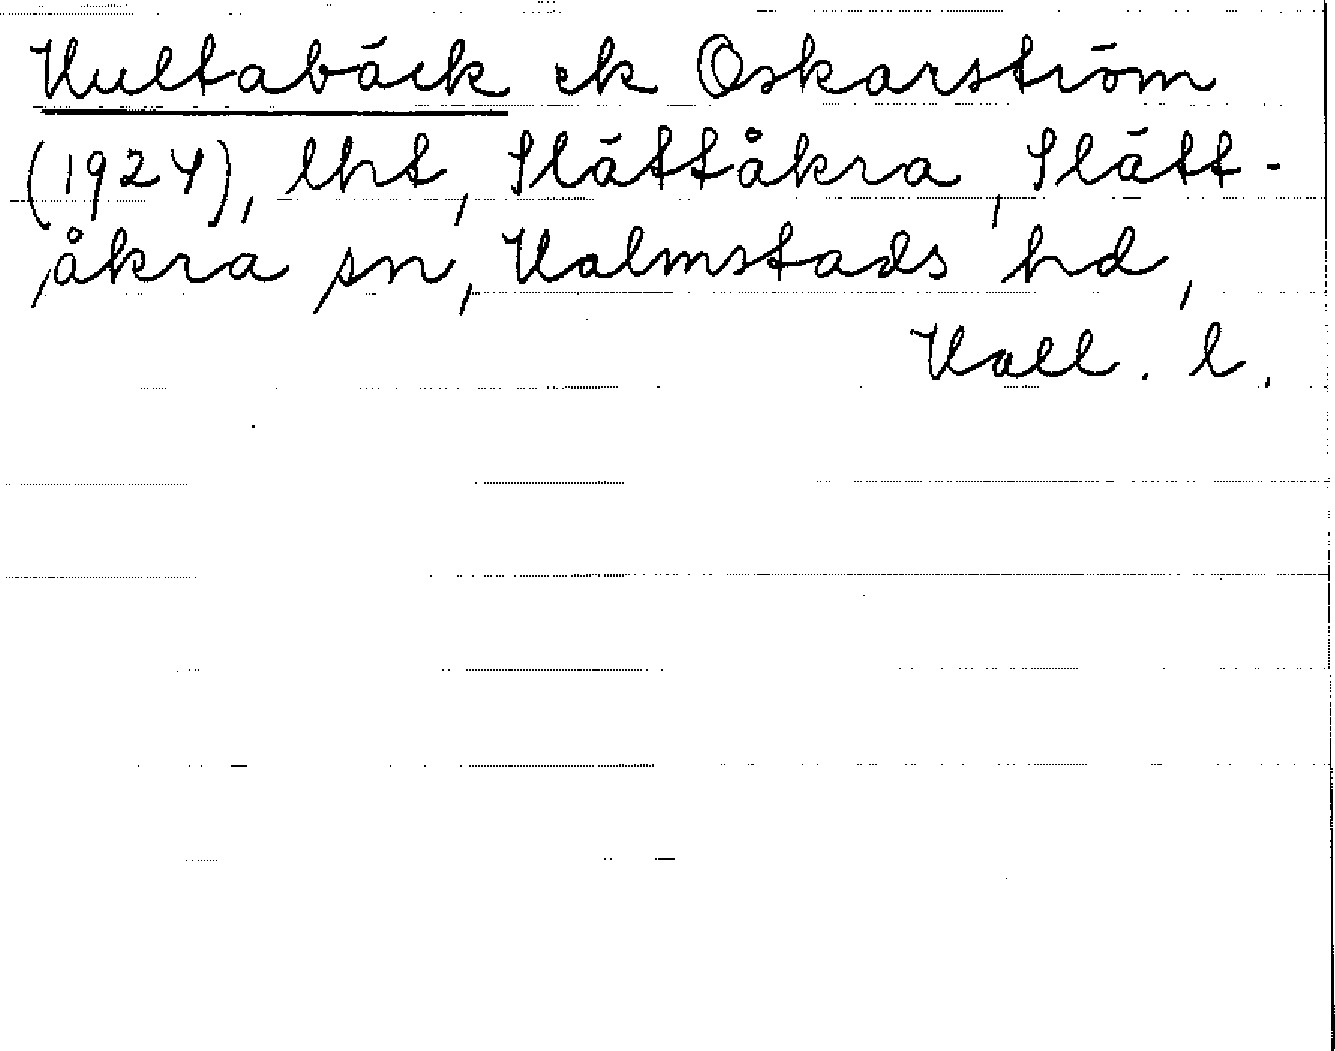 Hultabäck ek Oskarström
(1924), lht, Slättåkra, Slätt-
åkra sn, Halmstads hd,
Hall. l.